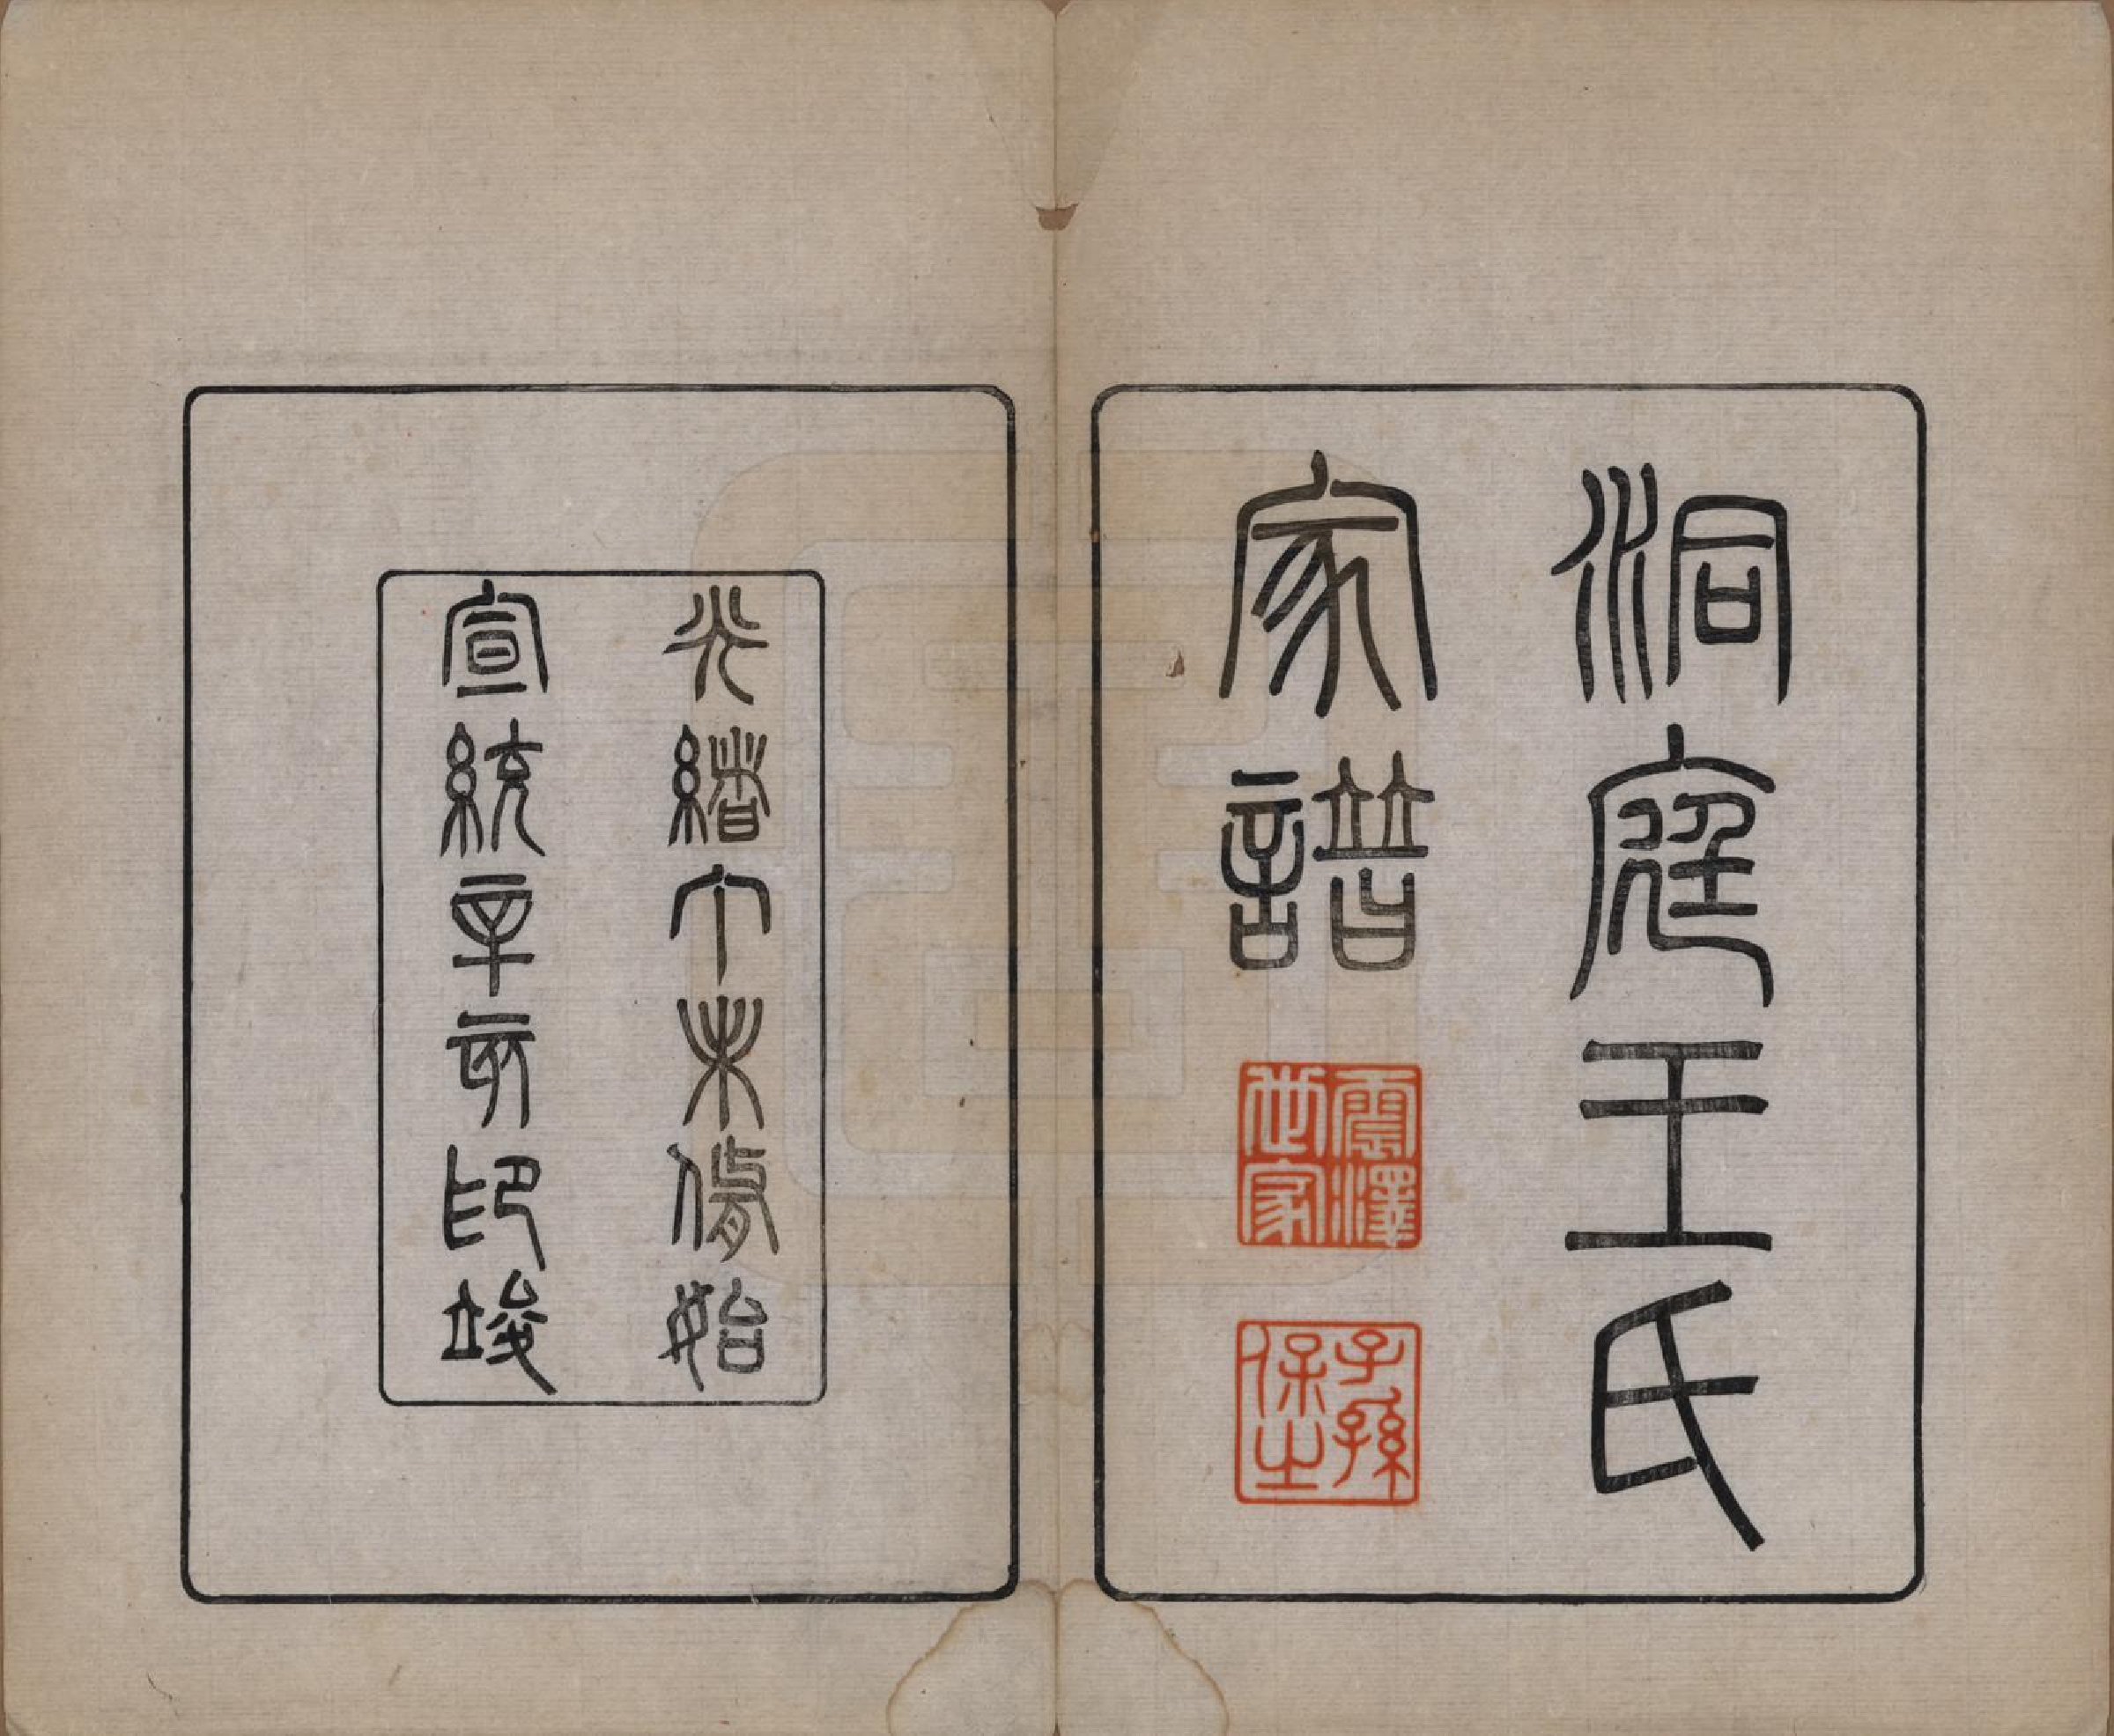 洞庭王氏
家譜
震澤
世家
子孫
保之
光緒丁未脩始
宣統辛亥印竣